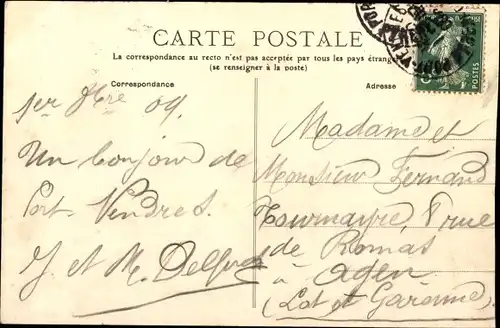 CARTE POSTALE
La correspondance au recto n'est pas acceptée par tous les pays étrang
(se renseigner à la poste)
Correspondance
Adresse
1er 9bre 09.
Un bonjour de
Port Vendres.
J. et M.
Madame et
Monsieur Fernand
Tourmayre, 8 rue
de Romas
à Agen
(Lot et Garonne)
POSTES